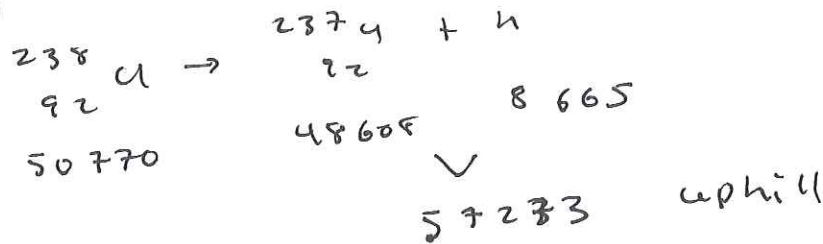 238 92 U → 237 92 U + n
50770 48608 8665
57273 uphill